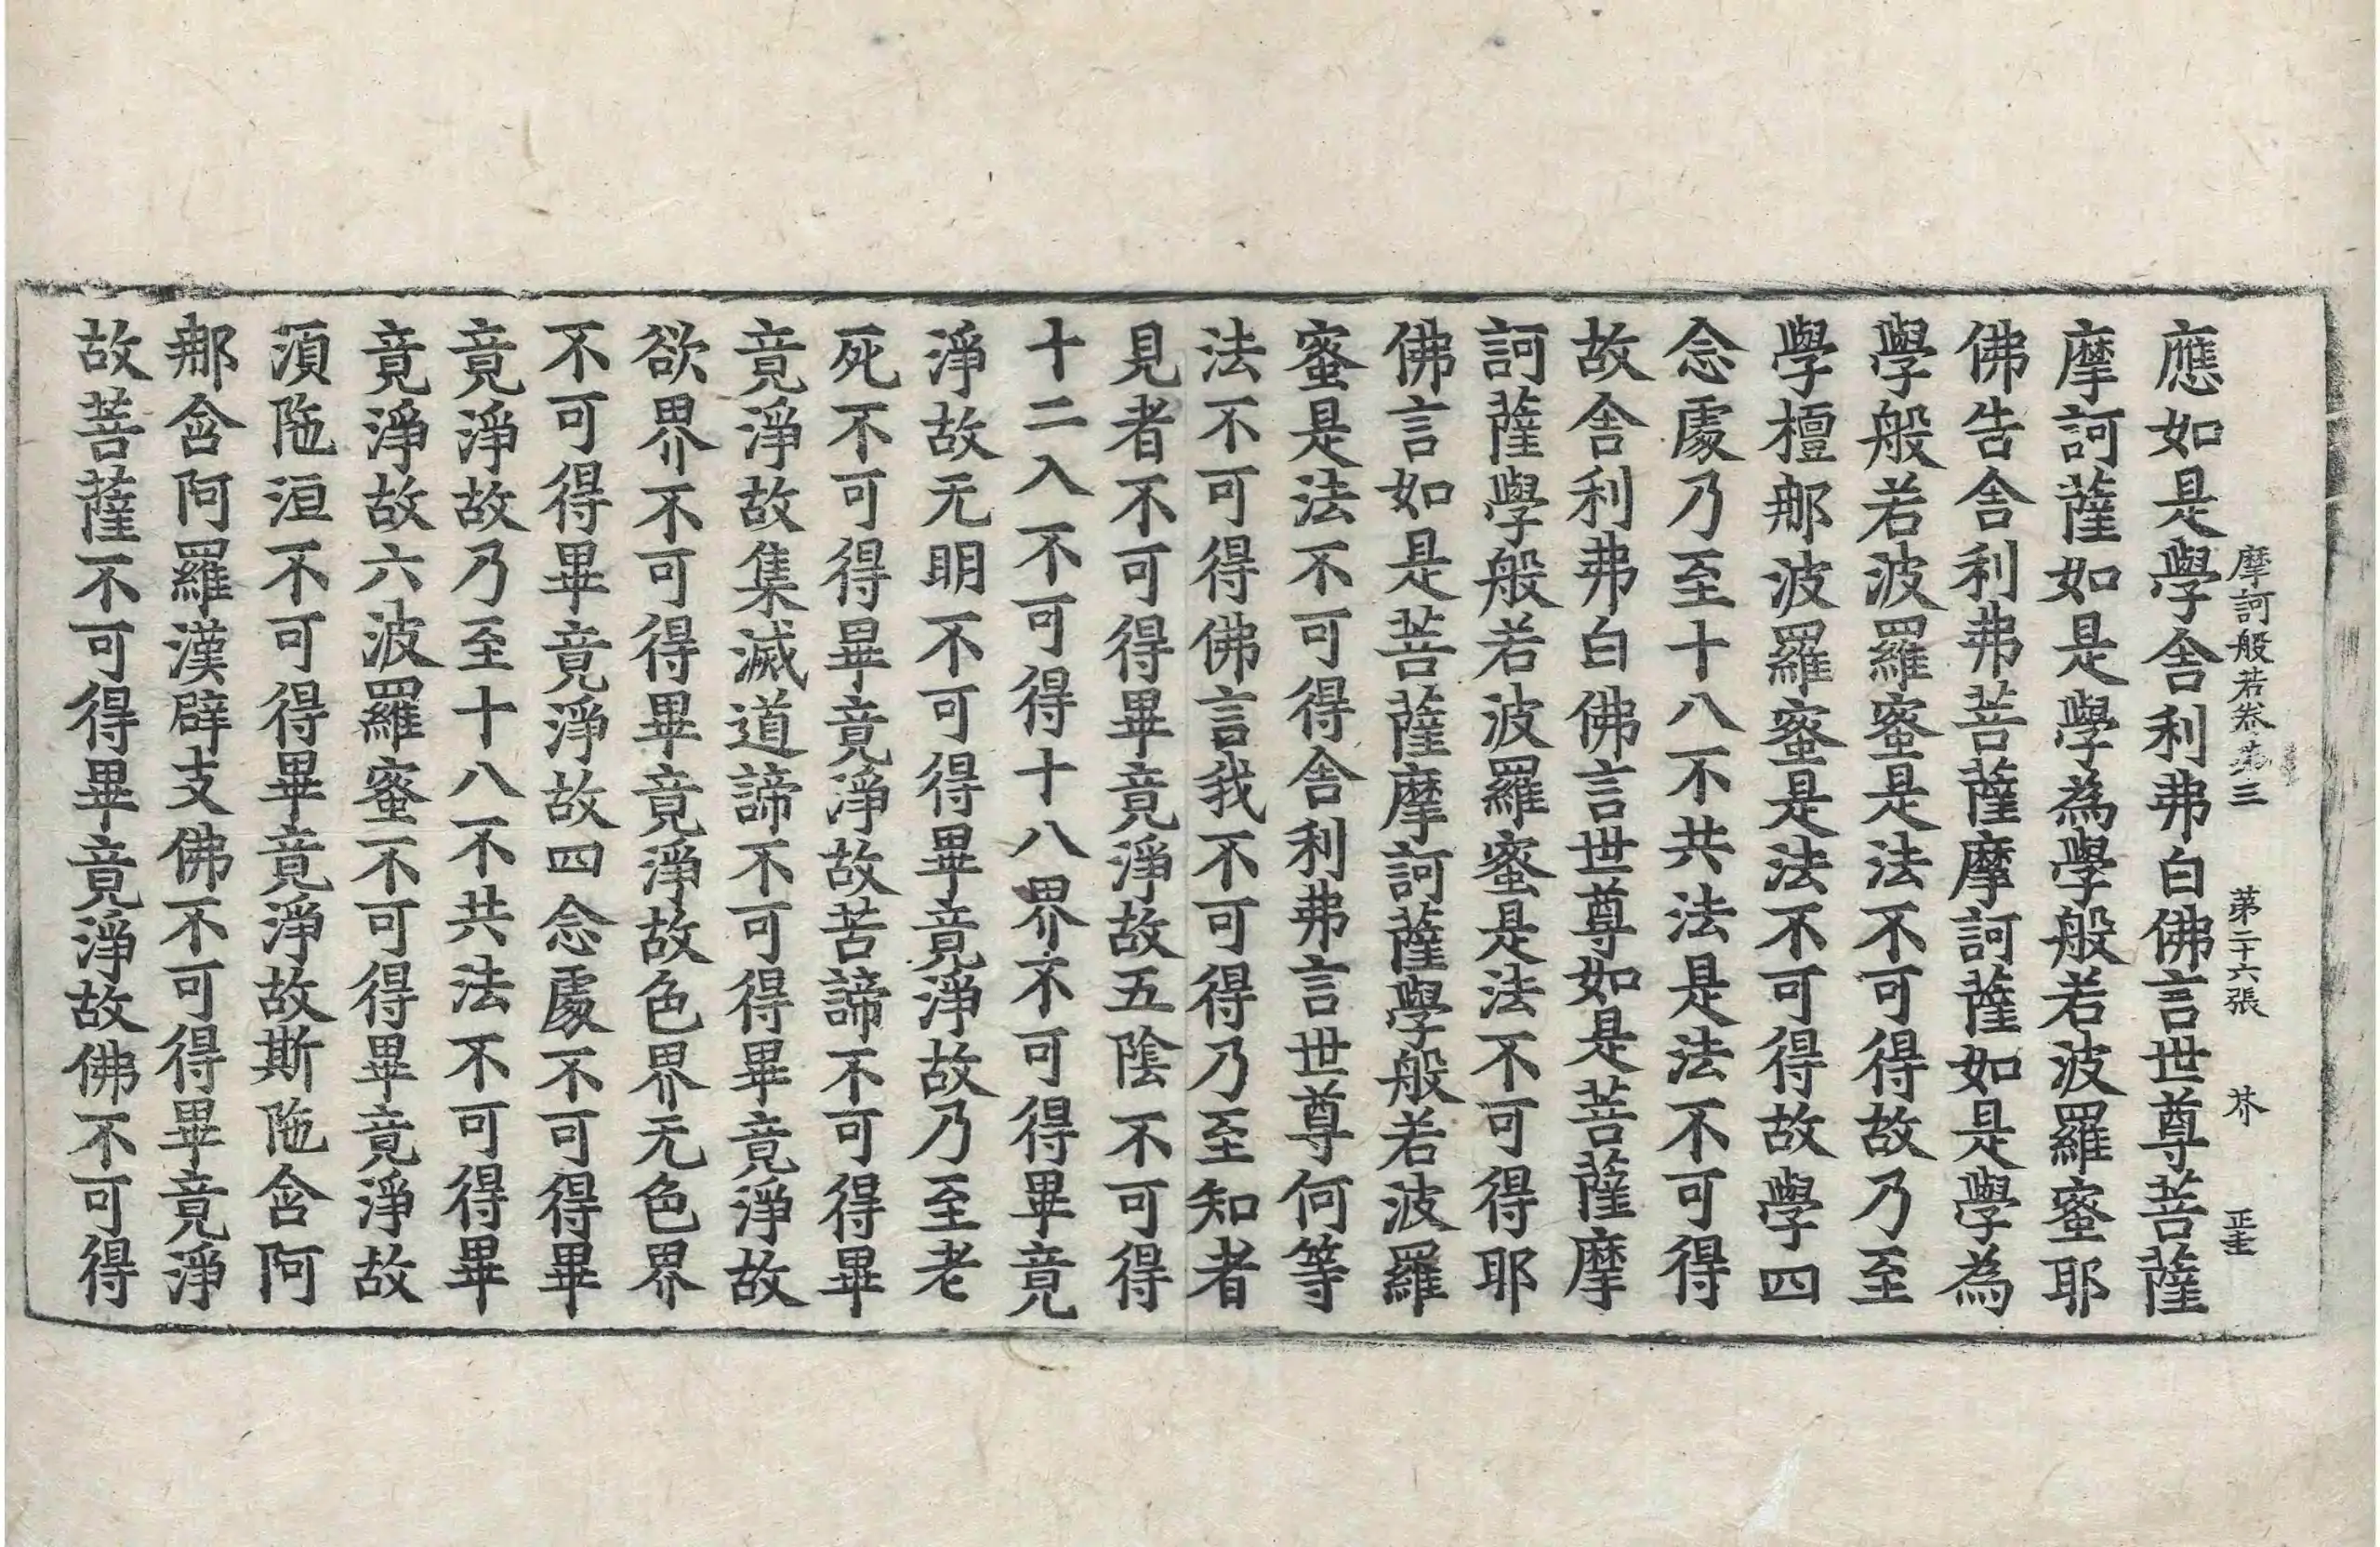 摩訶般若卷第三　第二十六張　芥　正主
應如是學舍利弗白佛言世尊菩薩
摩訶薩如是學為學般若波羅蜜耶
佛告舍利弗菩薩摩訶薩如是學為
學般若波羅蜜是法不可得故乃至
學檀那波羅蜜是法不可得故學四
念處乃至十八不共法是法不可得
故舍利弗白佛言世尊如是菩薩摩
訶薩學般若波羅蜜是法不可得耶
佛言如是菩薩摩訶薩學般若波羅
蜜是法不可得舍利弗言世尊何等
法不可得佛言我不可得乃至知者
見者不可得畢竟淨故五陰不可得
十二入不可得十八界不可得畢竟
淨故无明不可得畢竟淨故乃至老
死不可得畢竟淨故苦諦不可得畢
竟淨故集滅道諦不可得畢竟淨故
欲界不可得畢竟淨故色界无色界
不可得畢竟淨故四念處不可得畢
竟淨故乃至十八不共法不可得畢
竟淨故六波羅蜜不可得畢竟淨故
湏陁洹不可得畢竟淨故斯陁含阿
那含阿羅漢辟支佛不可得畢竟淨
故菩薩不可得畢竟淨故佛不可得